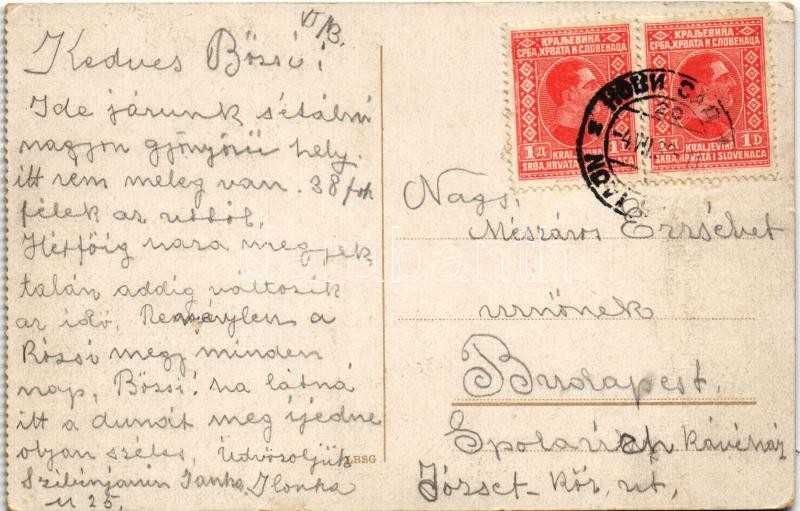 VI/3.
Kedves Bözsi!
Ide járunk sétálni
nagyon gyönyörü hely.
itt rém meleg van. 38 fok
félek az uttól,
Hétföig vara meg jek
talán addig változik
az idö. Reménylem a
Rózsi megy minden
nap, Bözsi! ha látná
itt a dunát meg ijedne
olyan széles, Üdvözöljük
Szibinjanin Janka, Ilonka
u 25.
КРАЉЕВИНА
СРБА, ХРВАТА И СЛОВЕНАЦА
1 Д
KRALJEVINA
SRBA, HRVATA
КРАЉЕВИНА
СРБА, ХРВАТА И СЛОВЕНАЦА
1 D
KRALJEVINA
SRBA, HRVATA I SLOVENACA
НОВИ САД
Nags,
Mészáros Erzsébet
urnönek
Budapest.
Spolarich Kávéház
József-Kör. ut,
darabanth